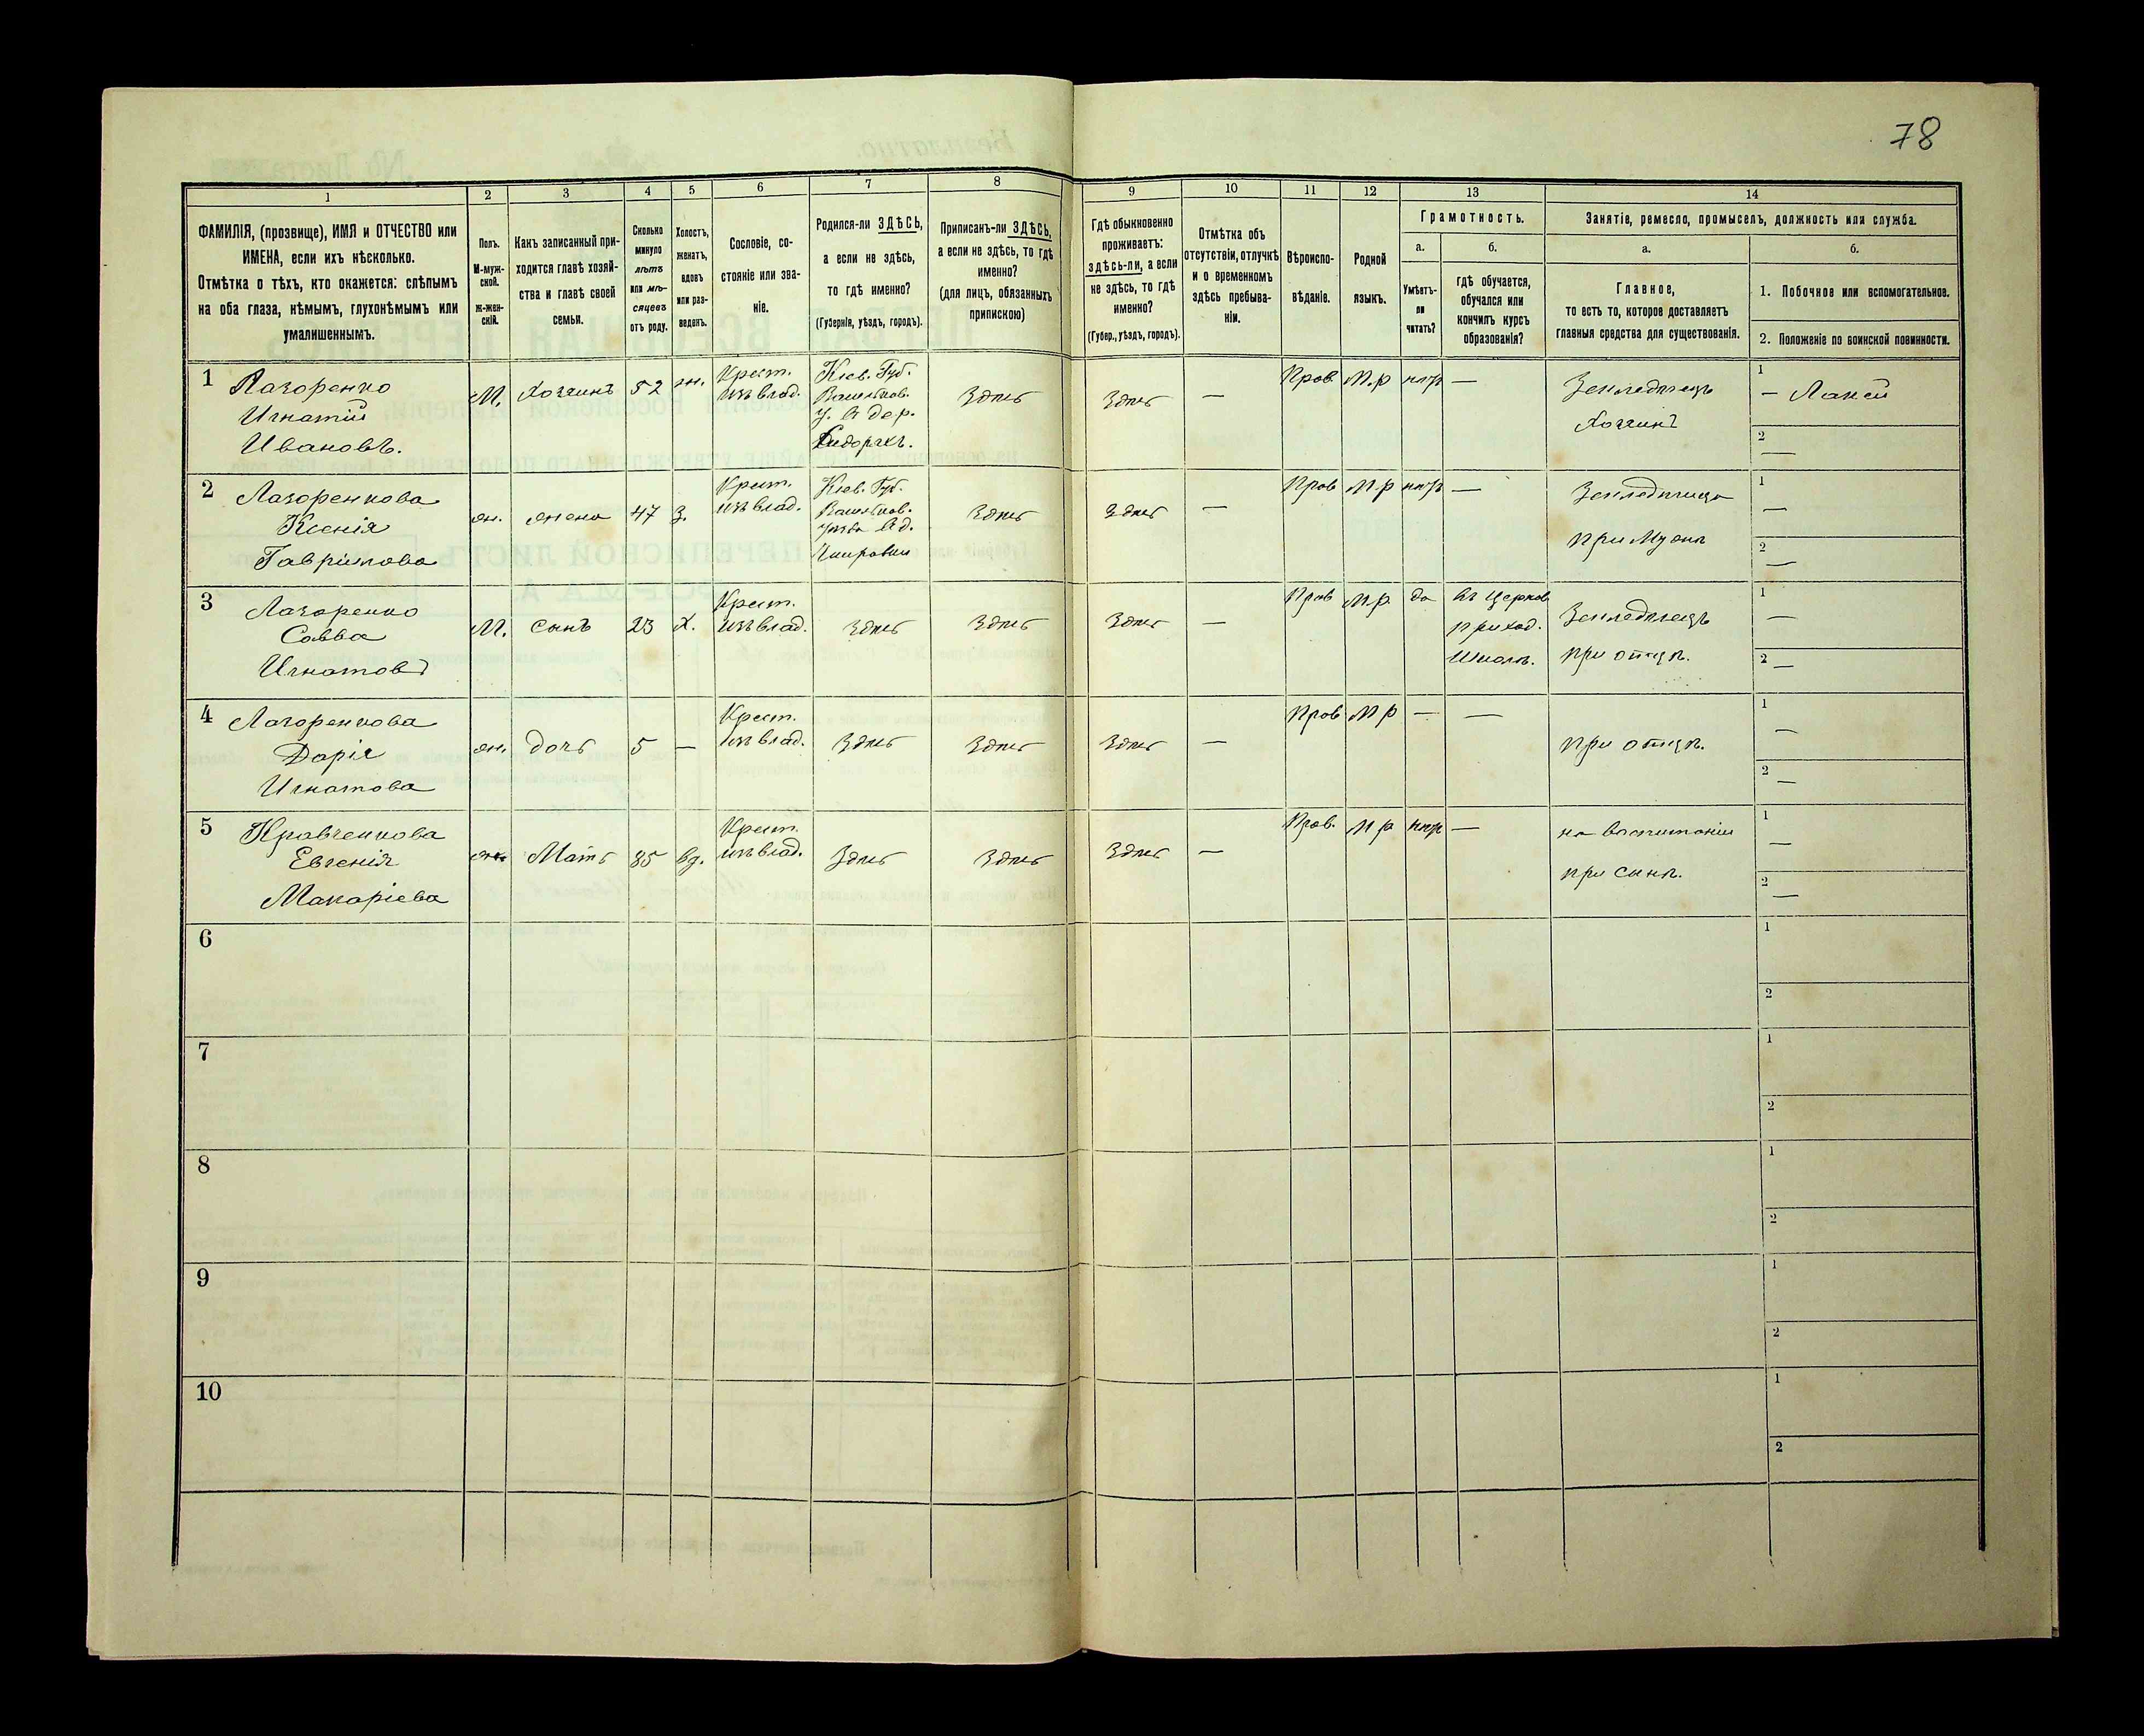 78
1 2 3 4 5 6 7 8 9 10 11 12 13 14
ФАМИЛІЯ, (прозвище), ИМЯ и ОТЧЕСТВО или
ИМЕНА, если ихъ нѣсколько.
Отмѣтка о тѣхъ, кто окажется: слѣпымъ
на оба глаза, нѣмымъ, глухонѣмымъ или
умалишеннымъ.
Полъ.
М-муж-
ской.
ж-жен-
скій.
Какъ записанный при-
ходится главѣ хозяй-
ства и главѣ своей
семьи.
Сколько
минуло
лѣтъ
или мѣ-
сяцевъ
отъ роду.
Холостъ,
женатъ,
вдовъ
или раз-
веденъ.
Сословіе, со-
стояніе или зва-
ніе.
Родился-ли ЗДѢСЬ,
а если не здѣсь,
то гдѣ именно?
(Губернія, уѣздъ, городъ).
Приписанъ-ли ЗДѢСЬ,
а если не здѣсь, то гдѣ
именно?
(для лицъ, обязанныхъ
припискою)
Гдѣ обыкновенно
проживаетъ:
здѣсь-ли, а если
не здѣсь, то гдѣ
именно?
(Губер., уѣздъ, городъ).
Отмѣтка объ
отсутствіи, отлучкѣ
и о временномъ
здѣсь пребыва-
ніи.
Вѣроиспо-
вѣданіе.
Родной
языкъ.
Грамотность.
а.
Умѣетъ-
ли
читать?
б.
гдѣ обучается,
обучался или
кончилъ курсъ
образованія?
Занятіе, ремесло, промыселъ, должность или служба.
а.
Главное,
то есть то, которое доставляетъ
главныя средства для существованія.
б.
1. Побочное или вспомогательное.
2. Положеніе по воинской повинности.
1
Лазоренко
Игнатій
Ивановъ.
М.
Хозяинъ
52
жн.
Крест.
изъ влад.
Кіев. Губ.
Васильков.
у. в дер.
Здѣсь
Здѣсь
—
Прав.
М.р
нѣтъ
—
Земледѣлецъ
Хозяинъ
1
— Лакей
2
—
2
Лазоренкова
Ксенія
Гаврілова
жн.
жена
47
З.
Крест.
изъ влад.
Кіев. Губ.
Васильков.
Здѣсь
Здѣсь
—
Прав
М.р
нѣтъ
—
при Мужѣ
1
—
2
—
3
Лазоренко
Савва
Игнатовъ
М.
сынъ
23
Х.
Крест.
изъ влад.
Здѣсь
Здѣсь
Здѣсь
—
Прав
М.р.
да
въ Церков
приход.
Школѣ.
Земледѣлецъ
при отцѣ.
1
—
2 —
4
Лазоренкова
Дарія
Игнатова
жн.
дочь
5
—
Крест.
изъ влад.
Здѣсь
Здѣсь
Здѣсь
—
Прав
М р
—
—
при отцѣ.
1
—
2
—
5
Кравченкова
Евгенія
Макаріева
жн.
Мать
85
вд.
Крест.
изъ влад.
Здѣсь
Здѣсь
Здѣсь
—
Прав.
М р
нѣтъ
—
на воспитаніи
при сынѣ.
1
—
2
—
6
1
2
7
1
2
8
1
2
9
1
2
10
1
2